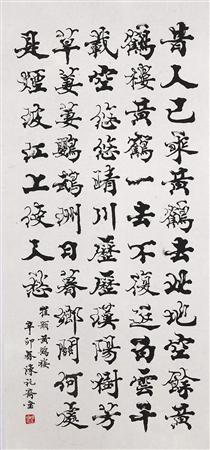 昔人已乘黃鶴去此地空餘黃
鶴樓黃鶴一去不復返白雲千
載空悠悠晴川歷歷漢陽樹芳
草萋萋鸚鵡洲日暮鄉關何處
是煙波江上使人愁
崔顥黃鶴樓
辛卯春陳礼齋書